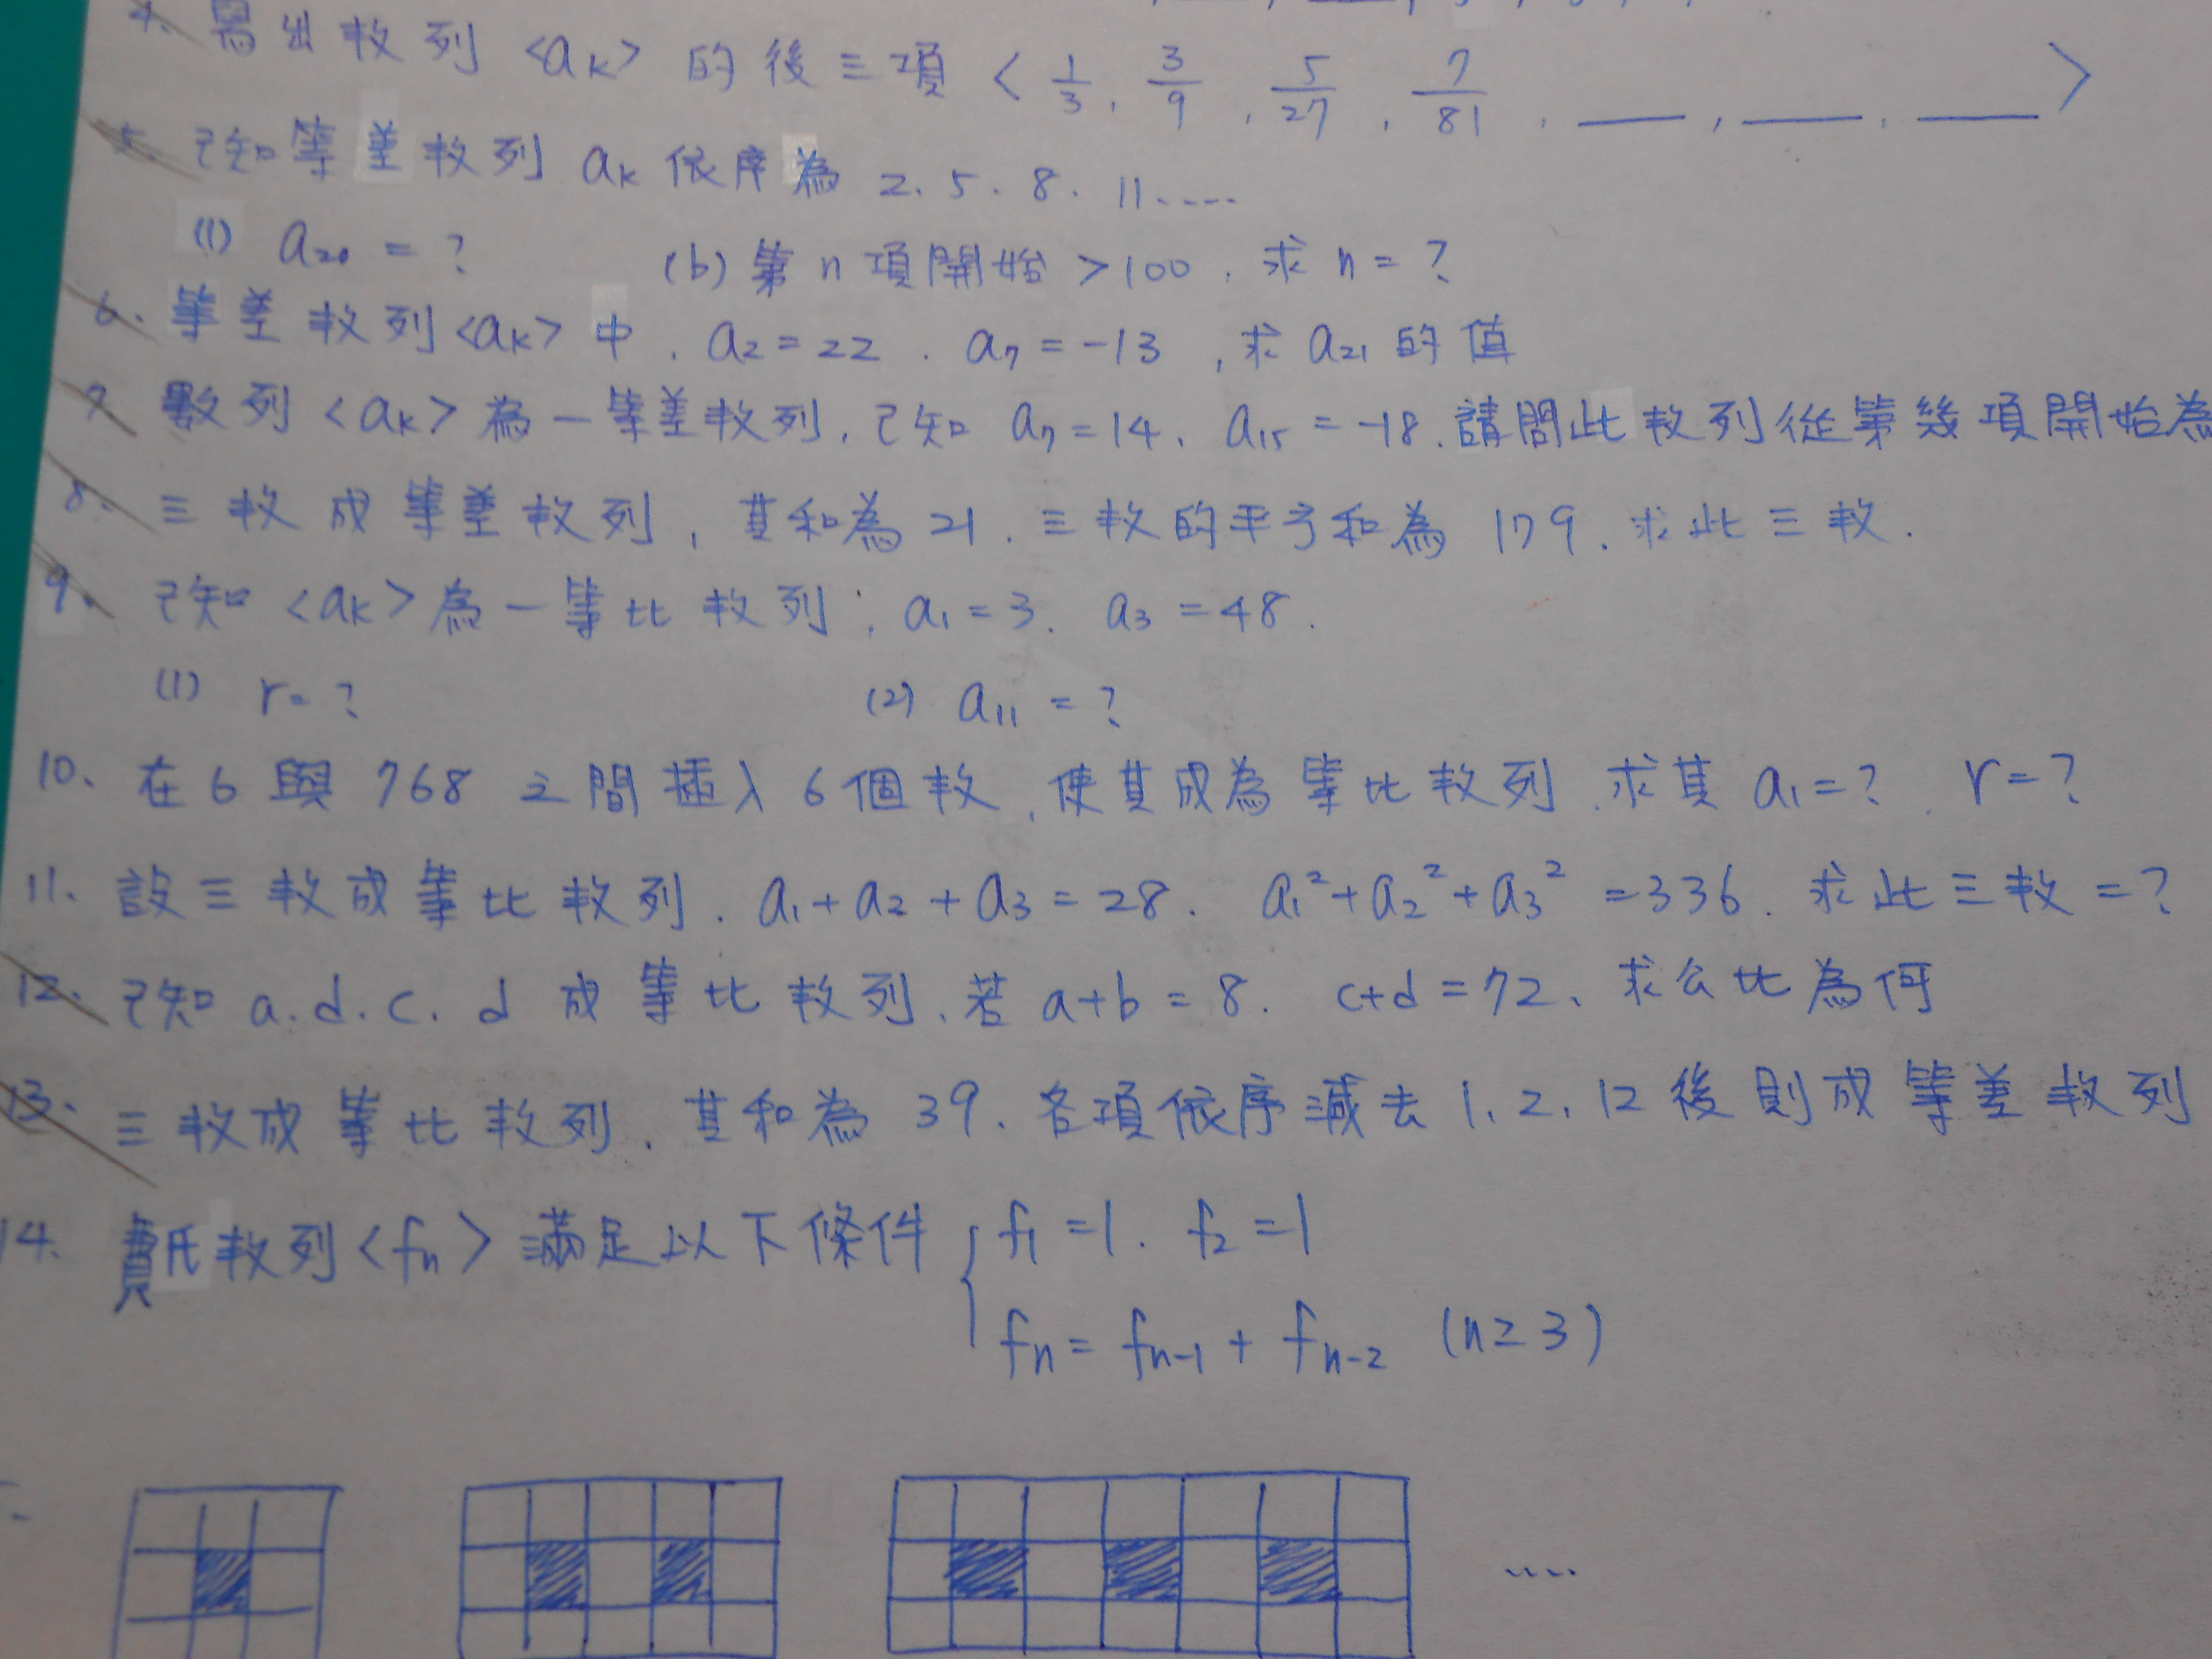 4. 寫出數列 <ak> 的後三項 < 1/3, 3/9, 5/27, 7/81, ___, ___, ___ >
5. 已知等差數列 ak 依序為 2、5、8、11.....
(1) a20 = ? (b) 第 n 項開始 >100, 求 n = ?
6. 等差數列 <ak> 中, a2 = 22, a7 = -13, 求 a21 的值
7. 數列 <ak> 為一等差數列, 已知 a7 = 14、a15 = -18, 請問此數列從第幾項開始為
8. 三數成等差數列, 其和為 21, 三數的平方和為 179, 求此三數.
9. 已知 <ak> 為一等比數列; a1 = 3. a3 = 48.
(1) r = ? (2) a11 = ?
10、在 6 與 768 之間插入 6 個數, 使其成為等比數列, 求其 a1 = ?, r = ?
11. 設三數成等比數列, a1 + a2 + a3 = 28. a1² + a2² + a3² = 336. 求此三數 = ?
12. 已知 a.d.c.d 成等比數列, 若 a+b = 8. c+d = 72、求公比為何
13. 三數成等比數列, 其和為 39、各項依序減去 1、2、12 後則成等差數列
14. 費氏數列 <fn> 滿足以下條件 { f1 = 1. f2 = 1
fn = fn-1 + fn-2 (n ≥ 3)
.....